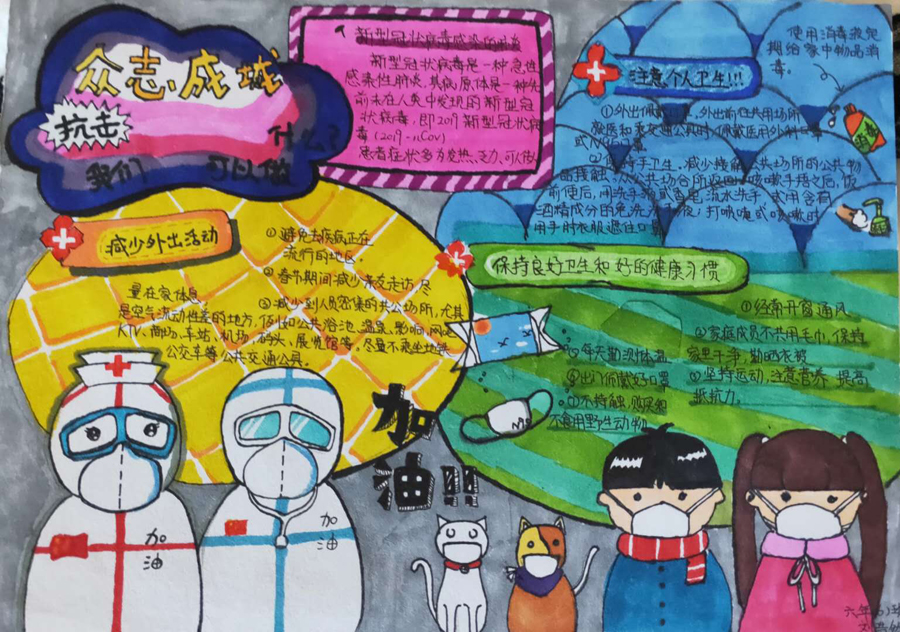 众志成城
抗击
什么?
我们 可以做
新型冠状病毒感染的肺炎
新型冠状病毒是一种急性
感染性肺炎,其病原体是一种先
前未在人类中发现的新型冠
状病毒,即2019新型冠状病
毒(2019-nCoV)
患者症状多为发热、乏力、可以
使用消毒液
家中物品消
毒。
注意个人卫生!!!
①外出佩戴 外出前往公共场所
和乘交通公共时,佩戴医用外科口罩
或N95口罩
②保持手卫生,减少接触公共场所的公共物
品接触,从公共场合所返回,咳嗽手捂之后,饭
前便后,用洗手液或香皂,流水洗手,或用含有
酒精成分的免洗洗手液;打喷嚏或咳嗽时
用手肘衣服遮住口鼻
减少外出活动
①避免去疾病正在
流行的地区。
②春节期间减少亲友走访,尽
量在家休息。
③减少到人员密集的共公场所,尤其
是空气流动性差的地方,例如公共浴池、温泉、影响、网吧
KTV、商场、车站、机场、码头、展览馆等,尽量不乘坐地铁、
公交车等公共交通公具
保持良好卫生和好的健康习惯
①经常开窗通风
②家庭成员不共用毛巾,保持
家里干净,勤晒衣被
③坚持运动,注意营养,提高
抵抗力。
每天勤测体温
出门佩戴好口罩
不接触,购买和
不食用野生动物
加
油!!!
加
油
加
油